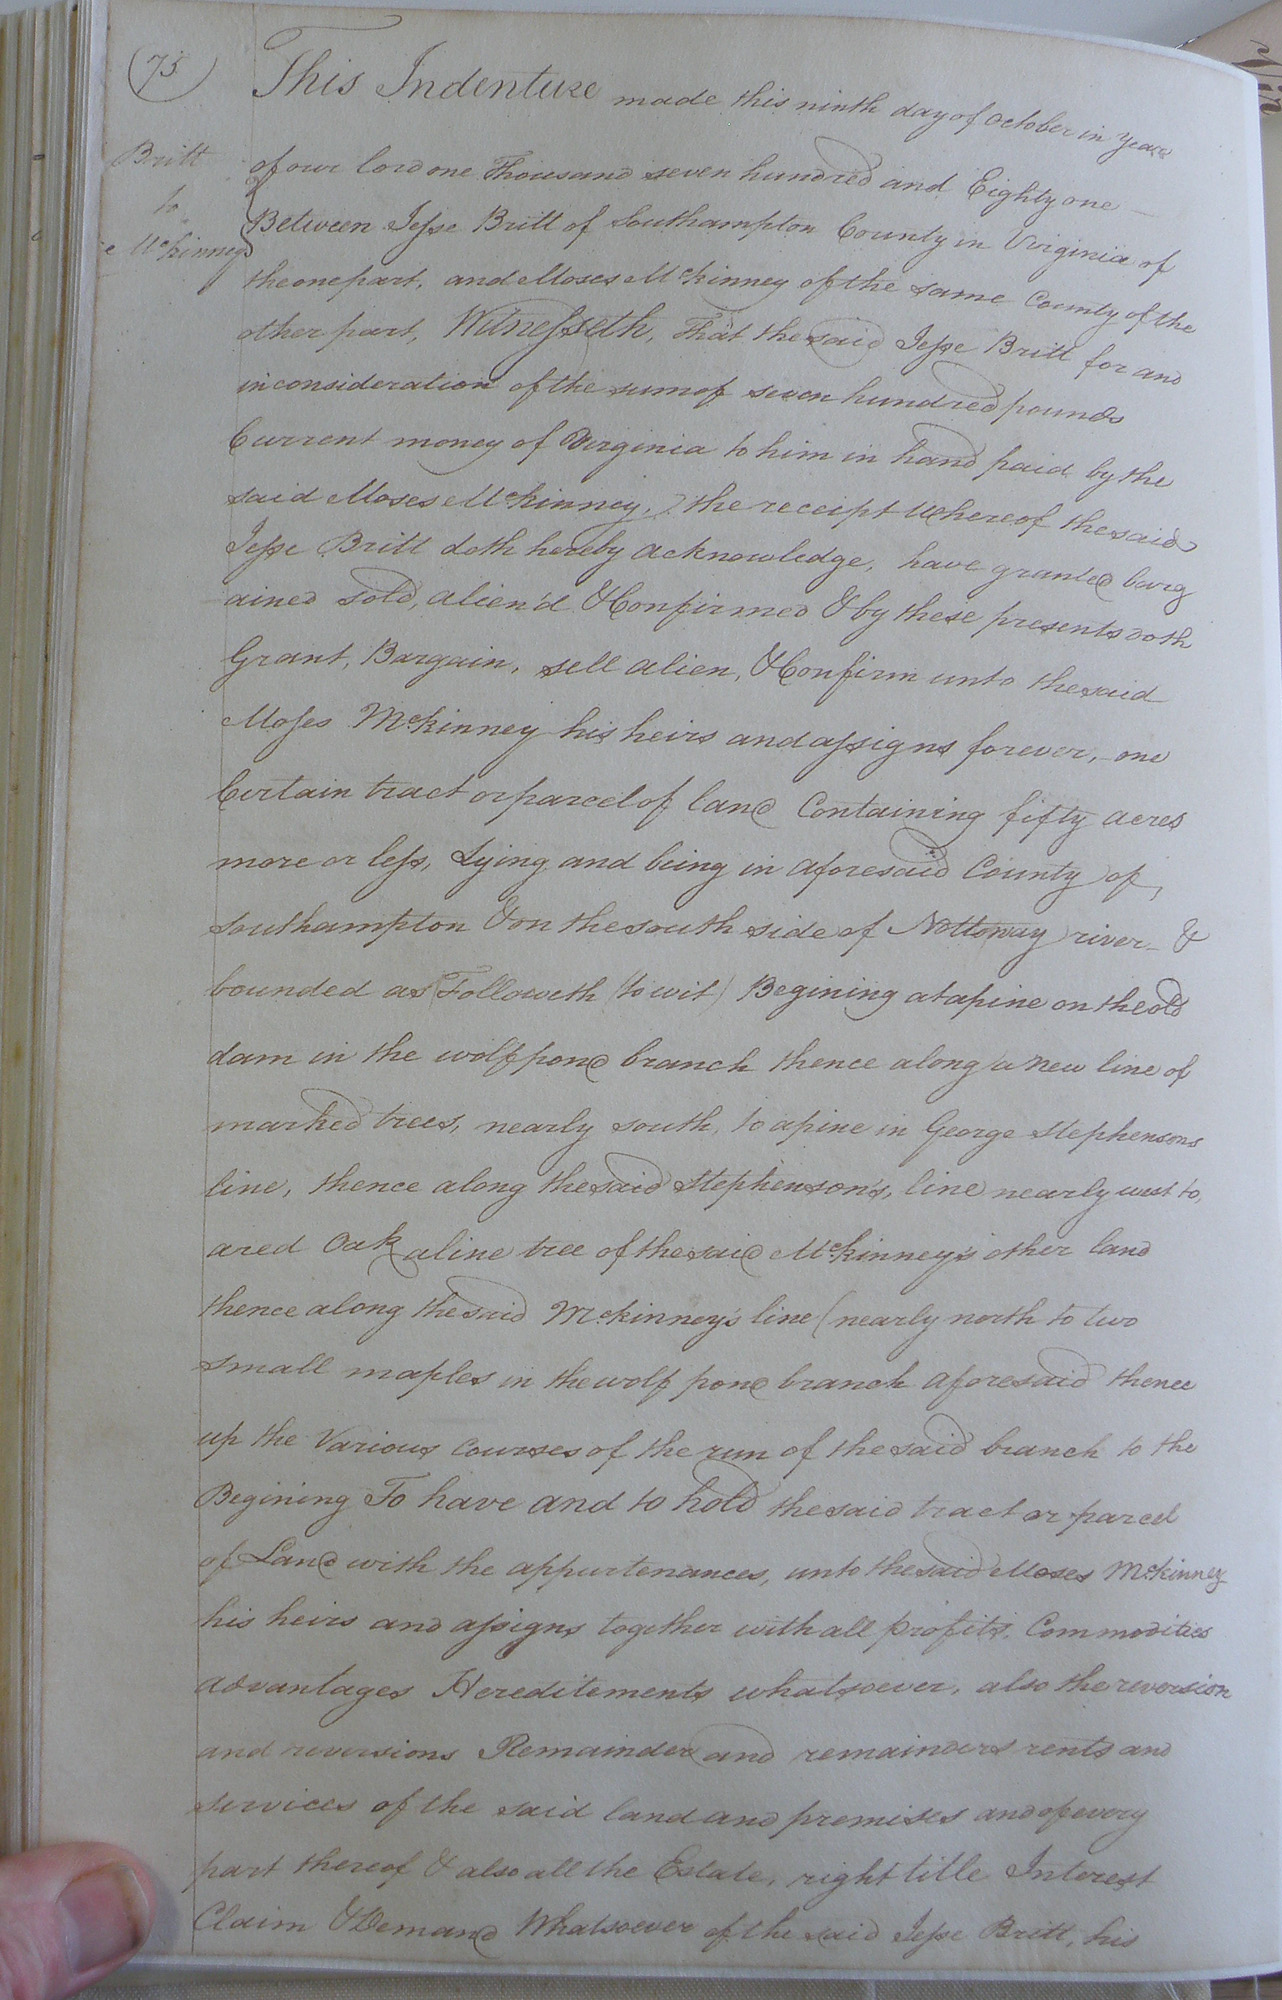 (75)
This Indenture made this ninth day of October in year
Britt
to
McKinney
of our lord one Thousand seven hundred and Eighty one
Between Jesse Britt of Southampton County in Virginia of
the one part, and Moses McKinney of the same County of the
other part, Witnesseth, That the said Jesse Britt for and
in consideration of the sum of seven hundred pounds
Current money of Virginia to him in hand paid by the
said Moses McKinney, the receipt whereof the said
Jesse Britt doth hereby acknowledge, have granted barg
ained sold, alien'd & Confirmed & by these presents doth
Grant, Bargain, sell alien, & Confirm unto the said
Moses McKinney his heirs and assigns forever, one
Certain tract or parcel of land Containing fifty acres
more or less, Lying and being in aforesaid County of,
Southampton & on the south side of Nottoway river &
bounded as Followeth (to wit) Begining at a pine on the old
dam in the wolf pond branch thence along a new line of
marked trees, nearly south, to a pine in George Stephensons
line, thence along the said Stephenson's, line nearly west to,
a red Oak a line tree of the said McKinney's other land
thence along the said McKinney's line (nearly north to two
small maples in the wolf pond branch aforesaid thence
up the Various courses of the run of the said branch to the
Begining To have and to hold the said tract or parcel
of Land with the appurtenances, unto the said Moses McKinney
his heirs and assigns together with all profits, Commodities
advantages Hereditements whatsoever, also the reversion
and reversions Remainder and remainders rents and
services of the said land and premises and of every
part thereof & also all the Estate, right title Interest
Claim & Demand Whatsoever of the said Jesse Britt, his